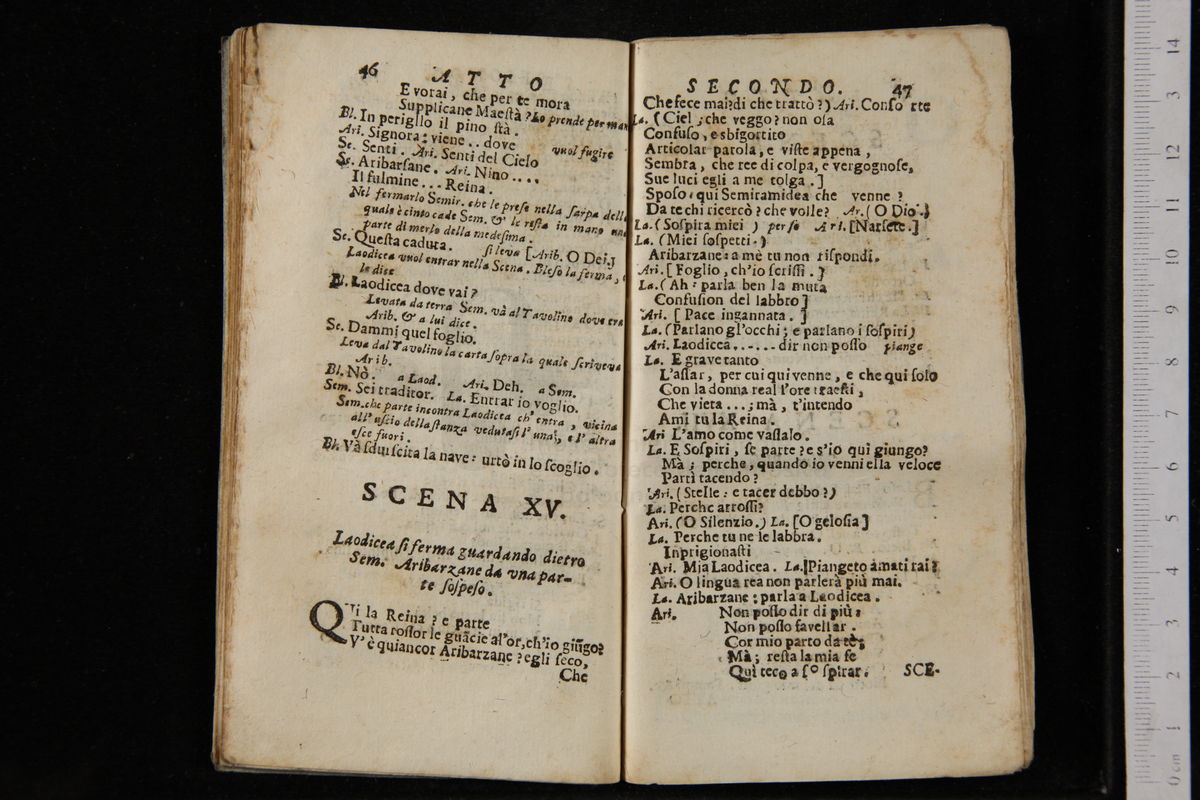 46 ATTO
E vorai, che per te mora
Supplicane Maeſtà? Lo prende per man
Bl. In periglio il pino ſtà.
Ari. Signora: viene.. dove vuol fugire
Se. Senti. Ari. Senti del Cielo
Se. Aribarſane. Ari. Nino....
Il fulmine... Reina.
Nel fermarlo Semir. che le preſe nella ſarpa della
quale è cinto cade Sem. & le reſta in mano una
parte di merlo della medeſima.
Se. Queſta caduta. ſi leva [Arib. O Dei.]
Laodicea vuol entrar nella Scena. Bleſo la ferma, e
le dice
Bl. Laodicea dove vai?
Levata da terra Sem. và al Tavolino dove era
Arib. & a lui dice.
Se. Dammi quel foglio.
Leva dal Tavolino la carta ſopra la quale ſcriveva
Arib.
Bl. Nò. a Laod. Ari. Deh. a Sem.
Sem. Sei traditor. La. Entrar io voglio.
Sem. che parte incontra Laodicea ch' entra, vicina
all' uſcio della ſtanza vedutaſi l' una, e l' altra
eſce fuori.
Bl. Và ſduiſcita la nave: urtò in lo ſcoglio.
SCENA XV.
Laodicea ſi ferma guardando dietro
Sem. Aribarzane da una par-
te ſoſpeſo.
QVi la Reina? e parte
Tutta roſſor le guãcie al'or, ch'io giũgo?
V' è quiancor Aribarzane? egli ſeco,
Che
SECONDO. 47
Che fece mai? di che trattò?) Ari. Conſo rte
La. (Ciel; che veggo? non oſa
Confuſo, e sbigottito
Articolar parola, e viſte appena,
Sembra, che ree di colpa, e vergognoſe,
Sue luci egli a me tolga.]
Spoſo: qui Semiramidea che venne?
Da te chi ricercò? che volle? Ar. (O Dio.)
La. (Soſpira miei) perſo Ari. [Narſete.]
La. (Miei ſoſpetti.)
Aribarzane: a me tu non riſpondi.
Ari. [Foglio, ch'io ſcriſſi.]
La. (Ah: parla ben la muta
Confuſion del labbro]
Ari. [Pace ingannata.]
La. (Parlano gl'occhi; e parlano i ſoſpiri)
Ari. Laodicea...... dir non poſſo piange
La. E grave tanto
L'affar, per cui qui venne, e che qui ſolo
Con la donna real l'ore traeſti,
Che vieta...; mà, t'intendo
Ami tu la Reina.
Ari L'amo come vaſſalo.
La. E Soſpiri, ſe parte? e s'io quì giungo?
Mà; perche, quando io venni ella veloce
Partì tacendo?
Ari. (Stelle: e tacer debbo?)
La. Perche arroſſi?
Ari. (O Silenzio.) La. [O geloſia]
La. Perche tu ne le labbra.
Inprigionaſti
Ari. Mia Laodicea. La. [Piangeto amati rai?
Ari. O lingua rea non parlerà più mai.
La. Aribarzane: parla a Laodicea.
Ari. Non poſſo dir di più:
Non poſſo favellar.
Cor mio parto da tè;
Mà; reſta la mia fe
Quì teco a ſo ſpirar. SCE-